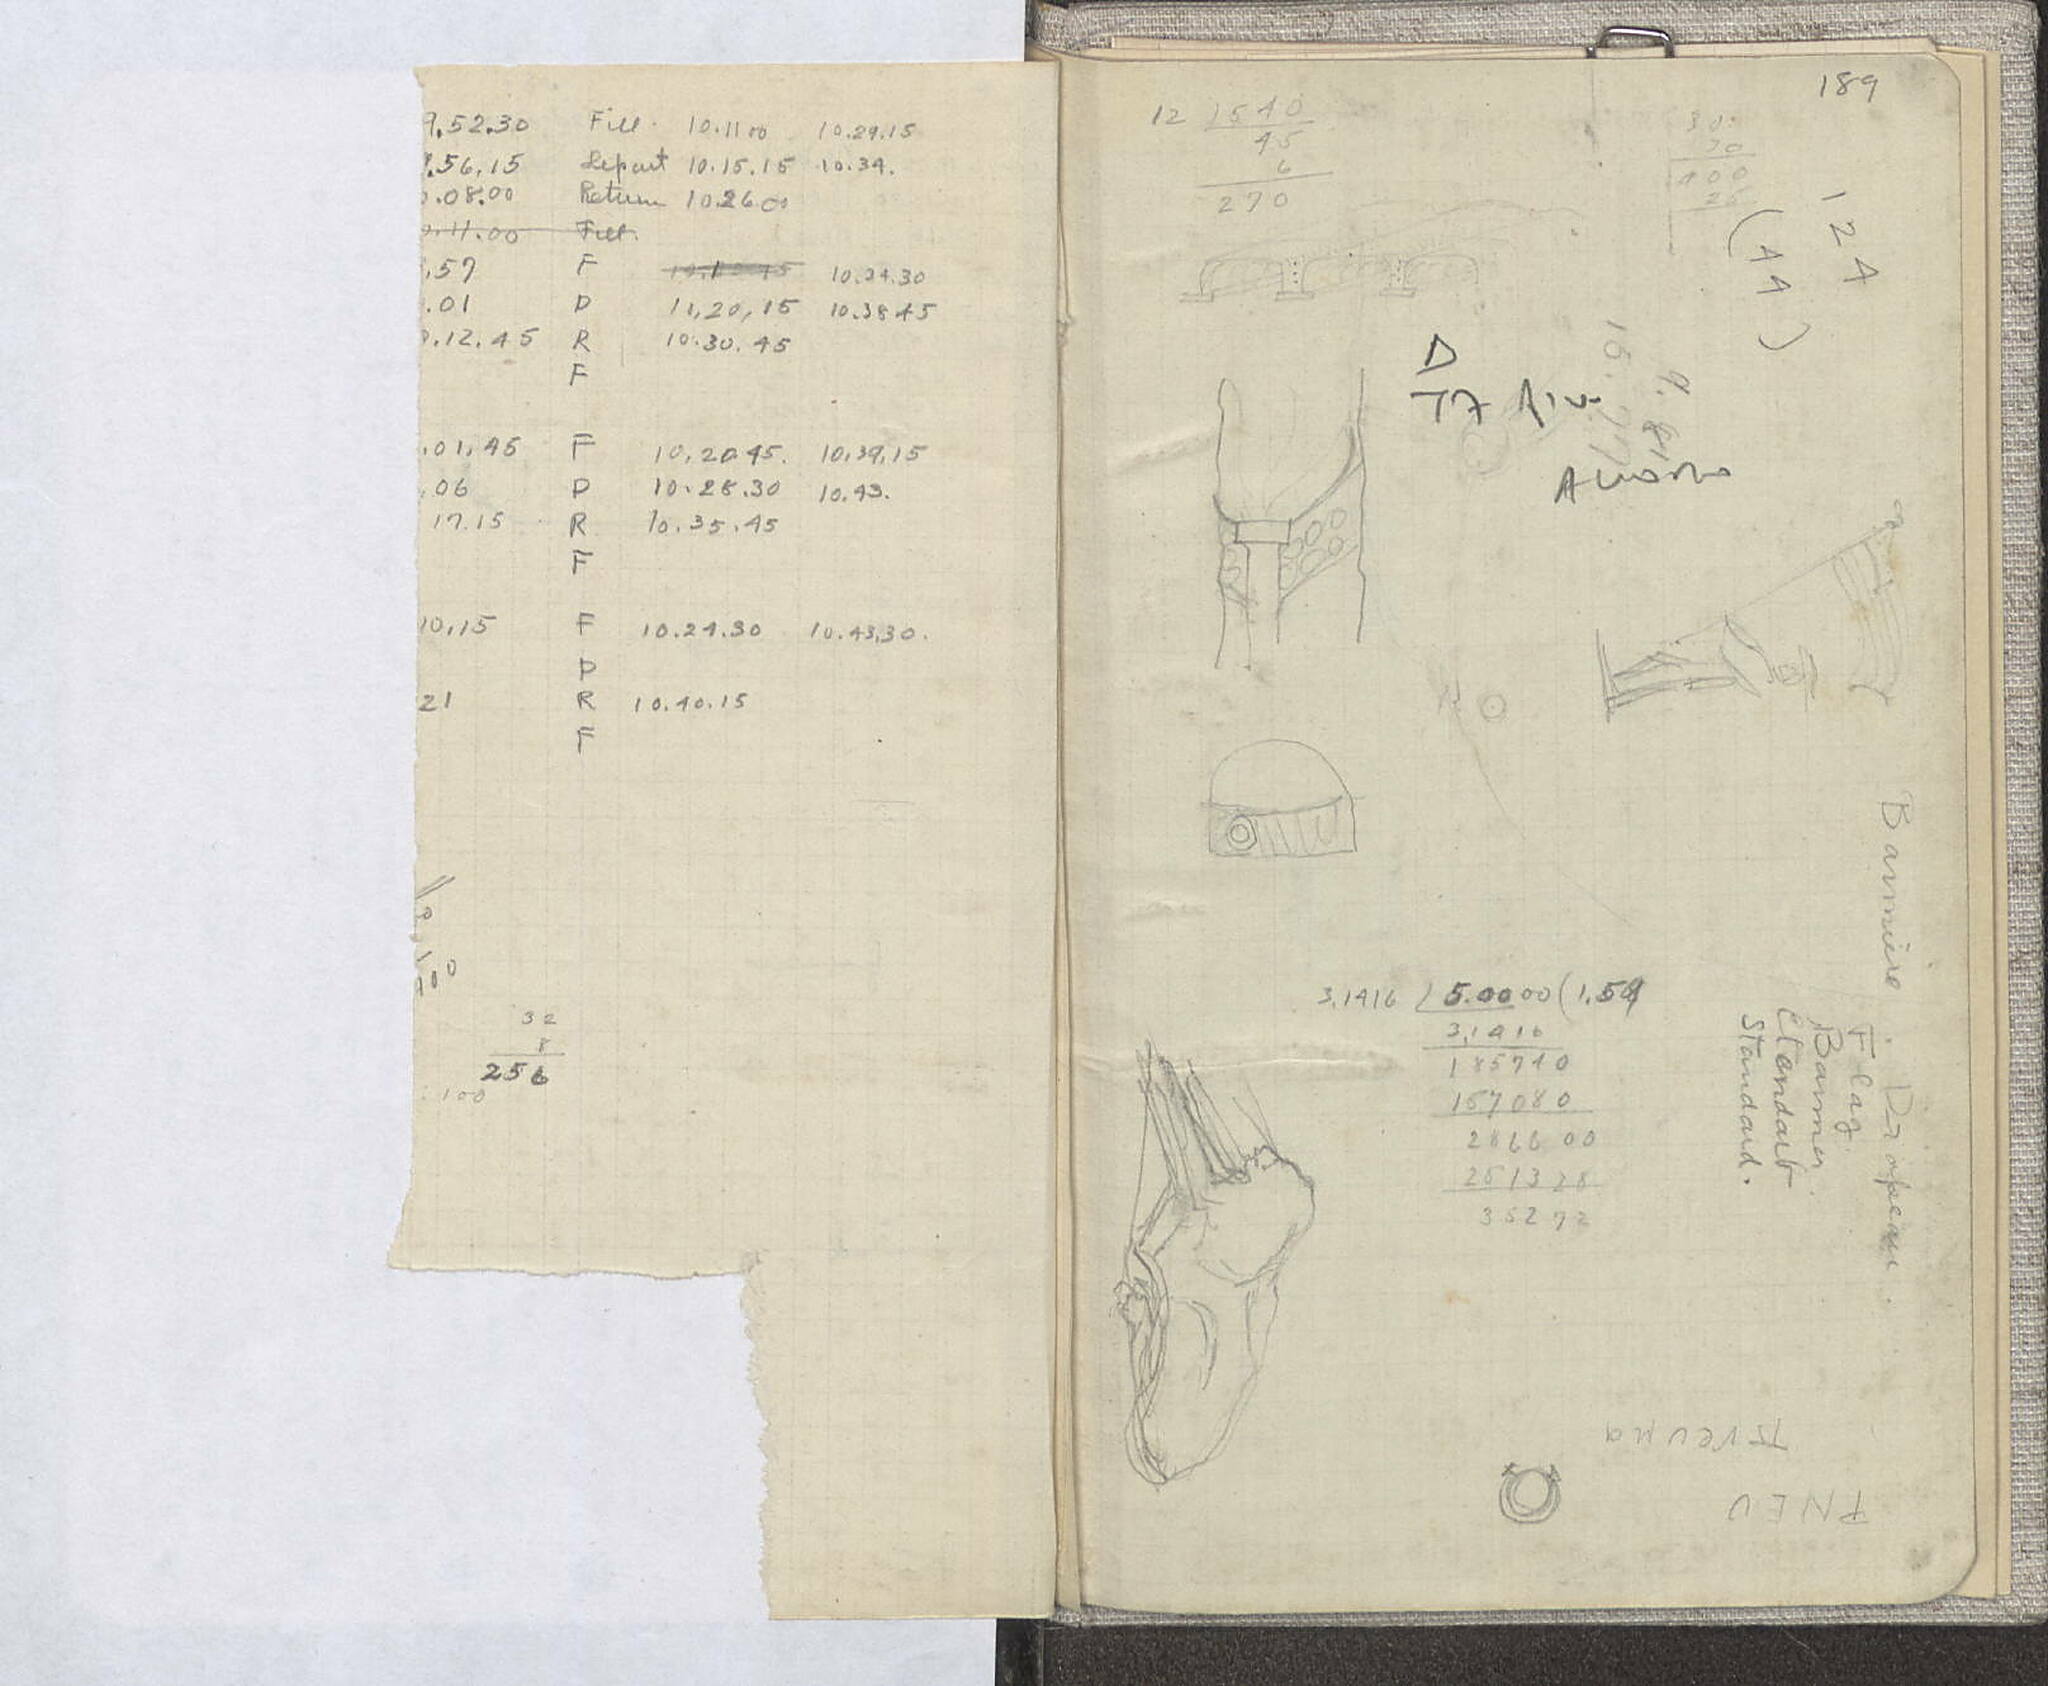 9.52.30 Fill. 10.11 00 10.29.15
.56.15 Depart 10.15.15 10.34.
.08.00 Return 10.26 00
.11.00 Fill.
.57 F 10.34.30
.01 D 11,20,15 10.38 45
.12.45 R 10.30.45
F
.01.45 F 10.20 45. 10.39.15
.06 D 10.25.30 10.43.
17.15 R 10.35.45
F
10.15 F 10.24.30 10.43.30.
D
21 R 10.40.15
F
32
8
256
100
189
12 1540
45
6
270
124
(44)
D
9.81
Bannière. Drapeau.
Flag.
Banner.
Etendart
Standard.
3.1416 5.0000 (1.59
3.1416
185740
157080
286600
251328
35272
πνευμα
PNEU